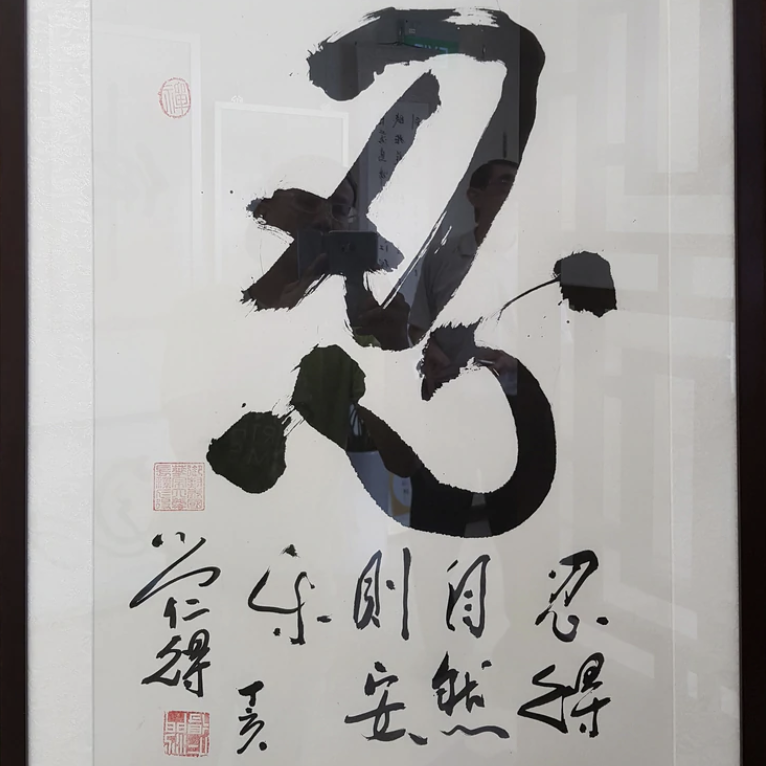 忍
忍得
自然
則安
乐
丁亥
仁得
禪